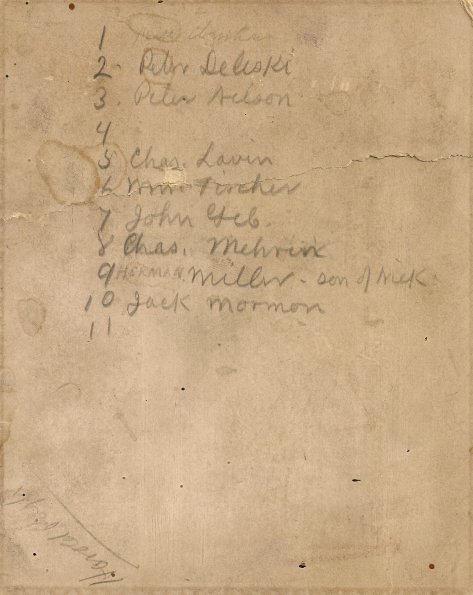 1
2. Peter Deleski
3. Peter Nelson
4
5 Chas. Lavin
6 Wm. Fircher
7 John Geb.
8 Chas. Mehrix
9 HERMAN Miller - son of Nick
10 Jack Mormon
11